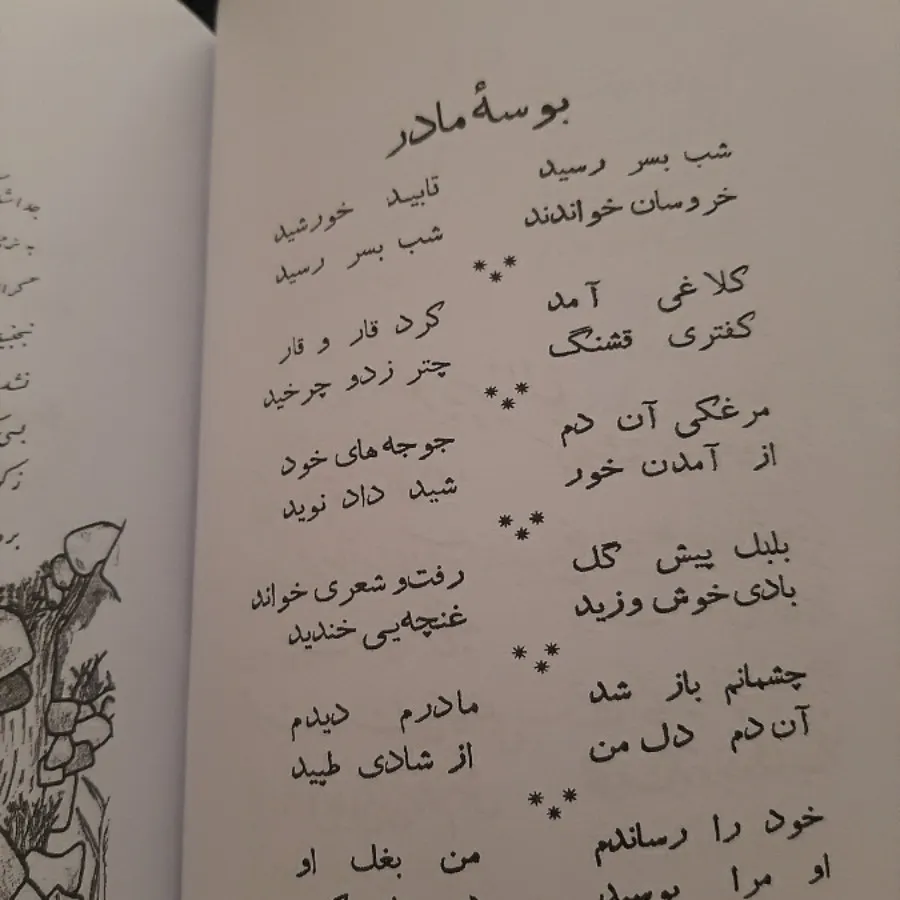 بوسهٔ مادر
شب بسر رسید تابید خورشید
خروسان خواندند شب بسر رسید
***
کلاغی آمد کرد قار و قار
کفتری قشنگ چتر زدو چرخید
***
مرغکی آن دم جوجه‌های خود
از آمدن خور شید داد نوید
***
بلبل پیش گل رفت‌و شعری خواند
بادی خوش وزید غنچه‌یی خندید
***
چشمانم باز شد مادرم دیدم
آن دم دل من از شادی طپید
***
خود را رساندم من بغل او
او مرا بوسید